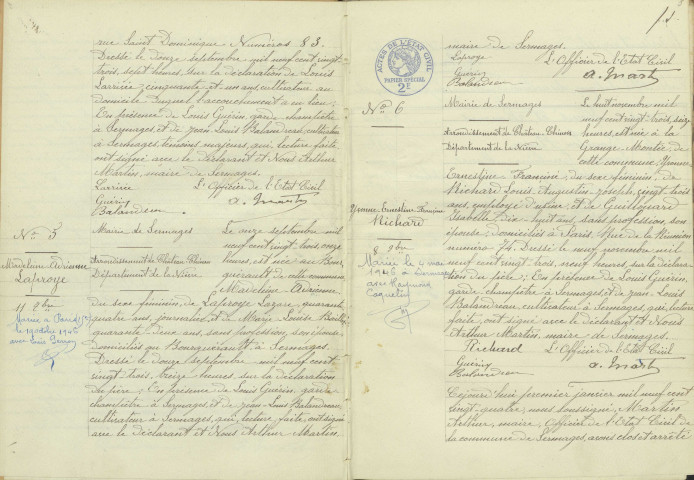 rue Saint Dominique Numéros 83.
Dressé le douze septembre mil neuf cent vingt
trois, sept heures, sur la déclaration de Louis
Larrivée cinquante et un ans cultivateur au
domicile duquel l'accouchement a eu lieu;
En présence de Louis Guérin, garde champêtre
à Sermages et de Jean Louis Balandreau, cultivateur
à Sermages témoins majeurs, qui, lecture faite,
ont signé avec le déclarant et Nous Arthur
Martin, maire de Sermages.
Larrivée L'Officier de l'Etat Civil
Guérin a. Martin
Balandreau
N° 5
Madeleine Adrienne
Laproye
11 9bre
Mairie de Sermages
Arrondissement de Château-Chinon
Département de la Nièvre
Le onze septembre mil
neuf cent vingt-trois, onze
heures, est née au Bour
guérault de cette commune
Madeleine Adrienne
du sexe féminin, de Laproye Lazare, quarante
quatre ans, journalier, et de Marie Louise
quarante deux ans, sans profession, son épouse
domiciliés au Bourguérault à Sermages.
Dressé le douze septembre mil neuf cent
vingt trois, treize heures sur la déclaration
du père; En présence de Louis Guérin, garde
champêtre à Sermages, et de Jean-Louis Balandreau,
cultivateur à Sermages, qui, lecture faite, ont signé
avec le déclarant et Nous Arthur Martin,
maire de Sermages.
Laproye L'Officier de l'Etat Civil
Guérin a. Martin
Balandreau
ACTES DE L'ETAT CIVIL
PAPIER SPECIAL
2F
N° 6
Yvonne Ernestine Francine
Richard
8 9bre
Mariée le 4 mai
1946 à
avec Raymond
Coquelin
Mairie de Sermages
Arrondissement de Château-Chinon
Département de la Nièvre
Le huit novembre mil
neuf cent vingt-trois, seize
heures, est née à la
Grange Montée de
cette commune Yvonne
Ernestine Francine, du sexe féminin, de
Richard Louis Augustin Joseph, vingt trois
ans, employé d'usine, et de
Isabelle dix-huit ans, sans profession, son
épouse, domiciliés à Paris, Rue de la Réunion
numéro 74. Dressé le neuf novembre mil
neuf cent vingt trois, neuf heures, sur la déclaration
du père; En présence de Louis Guérin,
garde champêtre à Sermages, et de Jean Louis
Balandreau, cultivateur à Sermages, qui, lecture
faite, ont signé avec le déclarant et Nous
Arthur Martin, maire de Sermages.
Richard L'Officier de l'Etat Civil
Guérin a. Martin
Balandreau
Cejourd'hui premier janvier mil neuf cent
vingt-quatre, nous soussigné, Martin
Arthur, maire, Officier de l'Etat Civil de
la commune de Sermages, avons clos et arrêté